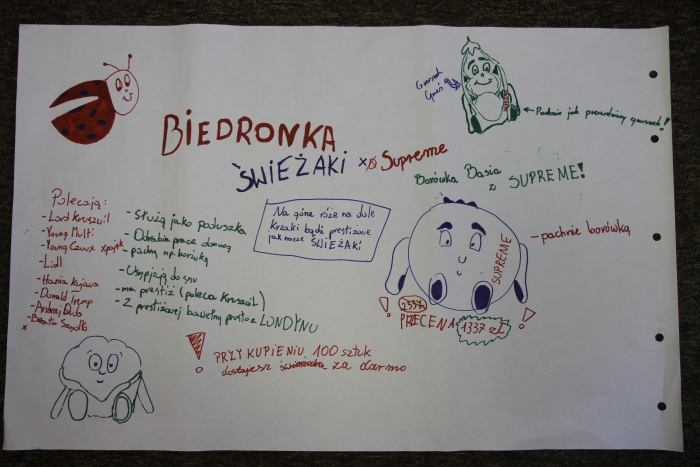 BIEDRONKA
ŚWIEŻAKI x Supreme
Groszek
Pachnie jak prawdziwy groszek!
Borówka Basia
z SUPREME!
Polecają:
- Lord Kruszwil
- Young Multi
- Young Czuux xpajak
- Lidl
- Hania Kujawa
- Donald Trump
- Andrzej Duda
- Beata Szydło
x
- Służą jako poduszka
- Odrabia prace domową
- pachną np. borówką
- Usypiają do snu
- ma prestiż (poleca Kruszwil)
- Z prestiżowej bawełny prosto z LONDYNU
Na górze róże na dole
krzaki bądź prestiżowe
jak nasze ŚWIEŻAKI
SUPREME
- pachnie borówką
! 2337zł !
PRZECENA 1337 zł
! PRZY KUPIENIU 100 SZTUK
dostajesz świeżaka za darmo